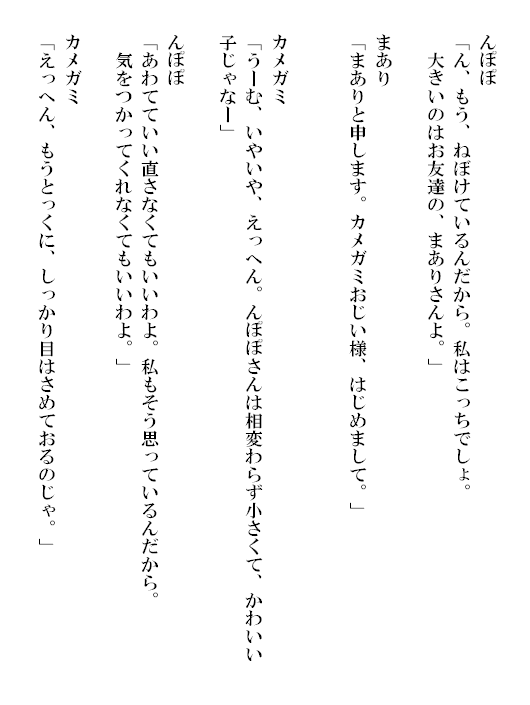 んぽぽ
「ん、もう、ねぼけているんだから。私はこっちでしょ。
大きいのはお友達の、まありさんよ。」
まあり
「まありと申します。カメガミおじい様、はじめまして。」
カメガミ
「うーむ、いやいや、えっへん。んぽぽさんは相変わらず小さくて、かわいい
子じゃなー」
んぽぽ
「あわてていい直さなくてもいいわよ。私もそう思っているんだから。
気をつかってくれなくてもいいわよ。」
カメガミ
「えっへん、もうとっくに、しっかり目はさめておるのじゃ。」